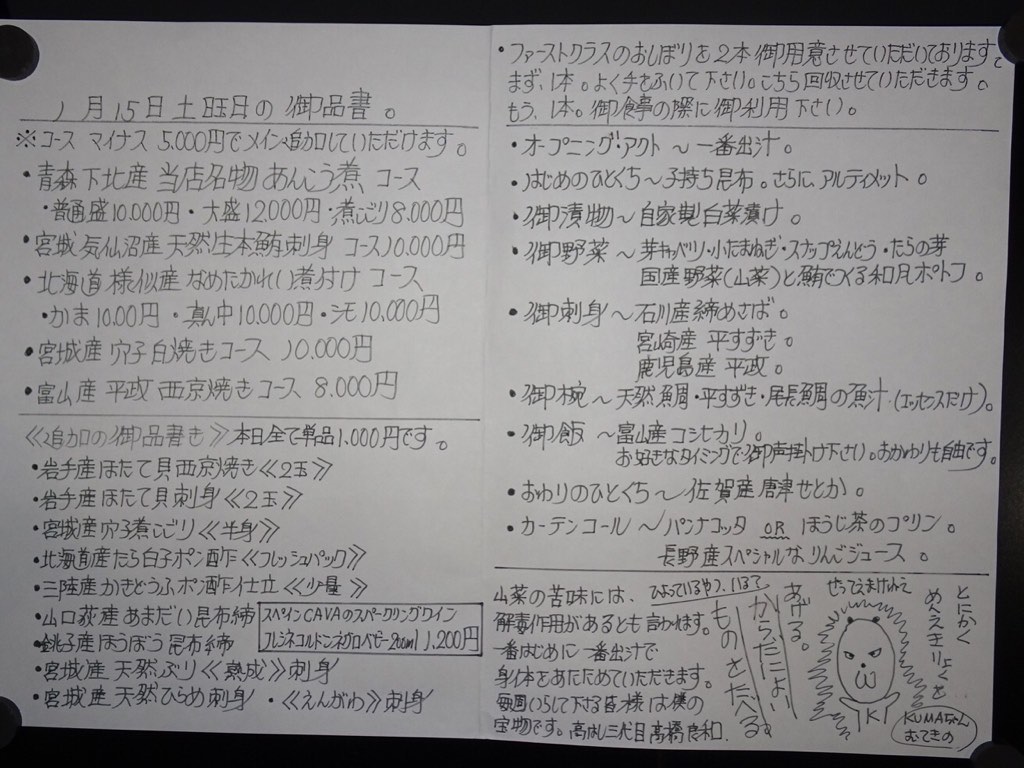 1月15日土曜日の御品書。
※コース マイナス 5.000円でメイン追加していただけます。
・青森下北産 当店名物あんこう煮 コース
・普通盛10.000円・大盛12.000円・煮こごり8.000円
・宮城気仙沼産 天然生本鮪刺身 コース10.000円
・北海道様似産 なめたかれい煮付け コース
・かま10.00円・真ん中10.000円・シモ10.000円
・宮城産 穴子白焼きコース 10.000円
・富山産 平政 西京焼きコース 8.000円
≪追加の御品書き≫本日全て単品1.000円です。
・岩手産ほたて貝西京焼き≪2玉≫
・岩手産ほたて貝刺身≪2玉≫
・宮城産穴子煮こごり≪半身≫
・北海道産たら白子ポン酢≪フレッシュパック≫
・三陸産かきどうふポン酢仕立≪少量≫
・山口萩産あまだい昆布締
・銚子産ほうぼう昆布締
スペインCAVAのスパークリングワイン
フレシネコルドンネグロベビー200ml 1,200円
・宮城産 天然ぶり≪熟成≫刺身
・宮城産 天然ひらめ刺身 ・≪えんがわ≫刺身
・ファーストクラスのおしぼりを2本御用意させていただいております。
まず、1本。よく手をふいて下さい。こちら回収させていただきます。
もう、1本。御食事の際に御利用下さい。
・オープニング・アクト〜一番出汁。
・はじめのひとくち〜子持ち昆布。さらに、アルティメット。
・御漬物〜自家製白菜漬け。
・御野菜〜芽キャベツ・小たまねぎ・スナップえんどう・たらの芽
国産野菜(山菜)と鮪でつくる和風ポトフ。
・御刺身〜石川産締めさば。
宮崎産 平すずき。
鹿児島産 平政。
・御椀〜天然鯛・平すずき・尾長鯛の魚汁(エッセンスだけ)。
・御飯〜富山産コシヒカリ。
お好きなタイミングで御声掛け下さい。おかわりも自由です。
・おわりのひとくち〜佐賀産唐津せとか。
・カーテンコール〜パンナコッタ OR ほうじ茶のプリン。
長野産スペシャルなりんごジュース。
山菜の苦味には、
解毒作用があるとも言われます。
一番はじめに一番出汁で
身体をあたためていただきます。
毎週いらして下さる皆様は僕の
宝物です。高はし三代目高橋良和.
あげる。
からだによい
ものをたべる。
とにかく
めんえきりょくを
KUMAちゃん
むてきの